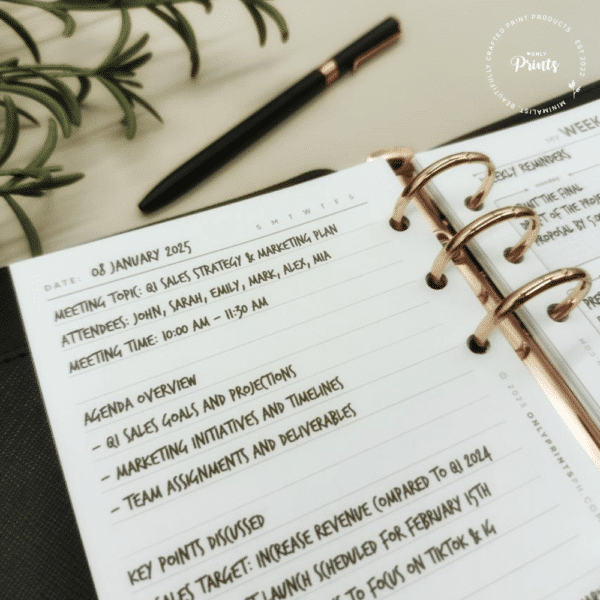 BEAUTIFULLY CRAFTED PRINT PRODUCTS · EST 2022 · MINIMALIST
#ONLY
Prints
S M T W T F S
DATE: 08 JANUARY 2025
MEETING TOPIC: Q1 SALES STRATEGY & MARKETING PLAN
ATTENDEES: JOHN, SARAH, EMILY, MARK, ALEX, MIA
MEETING TIME: 10:00 AM - 11:30 AM
AGENDA OVERVIEW
- Q1 SALES GOALS AND PROJECTIONS
- MARKETING INITIATIVES AND TIMELINES
- TEAM ASSIGNMENTS AND DELIVERABLES
KEY POINTS DISCUSSED
SALES TARGET: INCREASE REVENUE COMPARED TO Q1 2024
LAUNCH SCHEDULED FOR FEBRUARY 15TH
TO FOCUS ON TIKTOK & IG
© 2025 ONLYPRINTSPH.CO
WEEK
REMINDERS
THE FINAL
OF THE
PROPOSAL BY